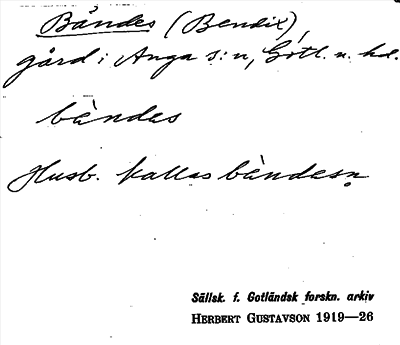 Båndes (Bendix),
gård i Anga s:n, Gotl. n. hd.
bàndes
Husb. kallas bàndesn
Sällsk. f. Gotländsk forskn. arkiv
HERBERT GUSTAVSON 1919—26